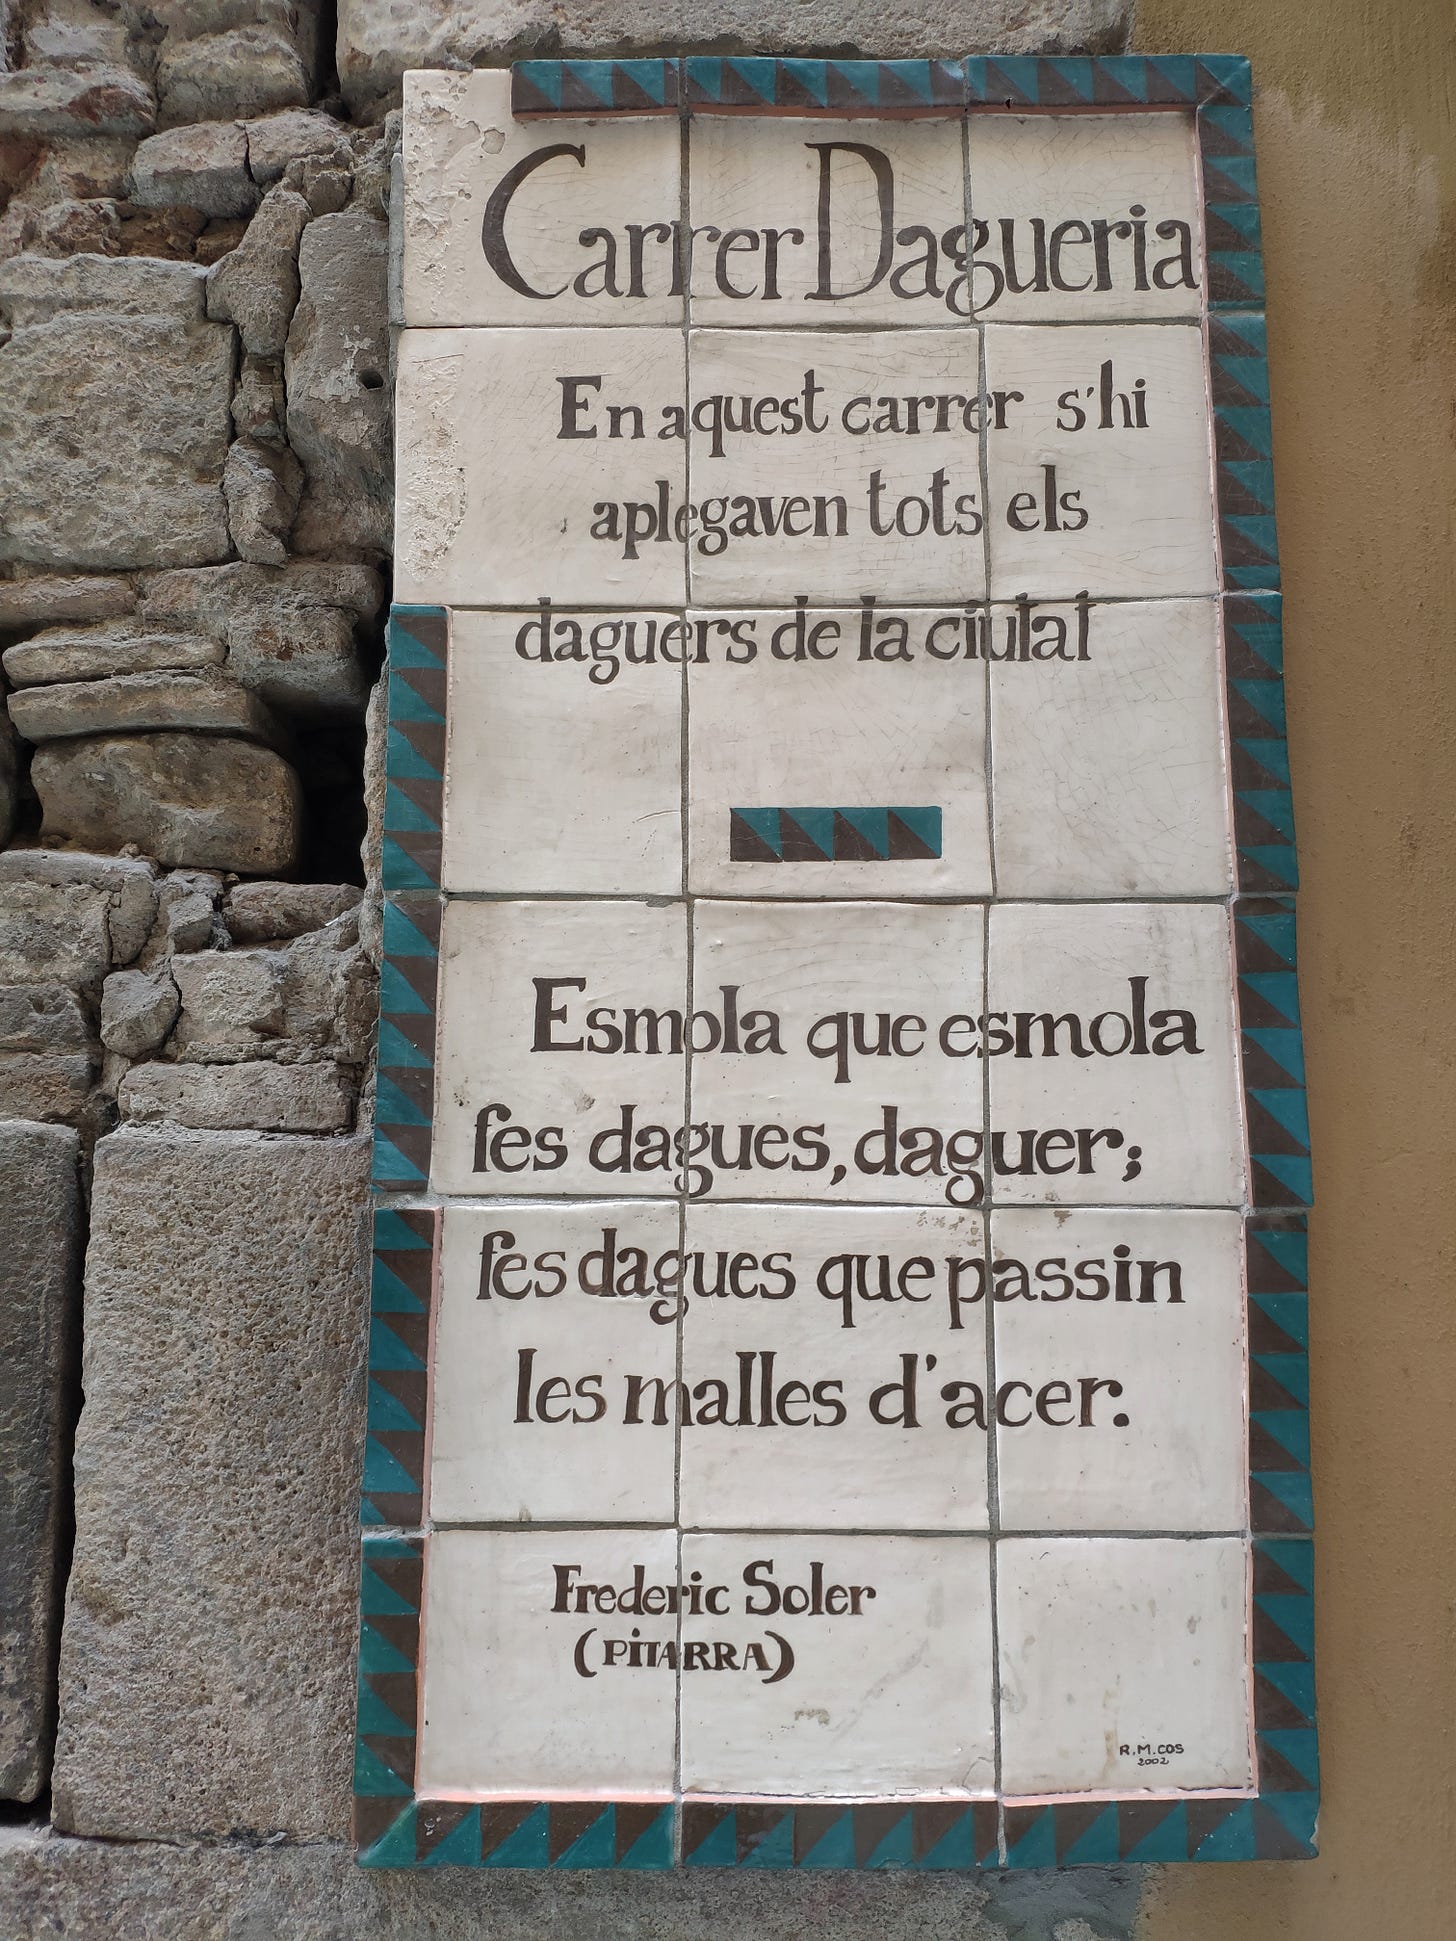 Carrer Dagueria
En aquest carrer s'hi
aplegaven tots els
daguers de la ciutat
Esmola que esmola
fes dagues, daguer;
fes dagues que passin
les malles d'acer.
Frederic Soler
(PITARRA)
R.M.COS
2002